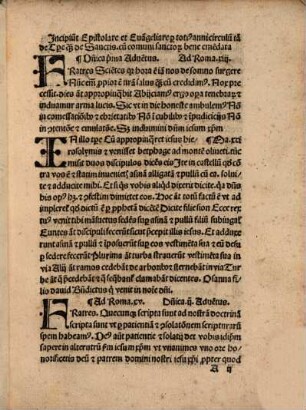 Incipiũt Epistolare et Euãgeliareꝫ totiꝰ anni circulũ tã
de Tꝑe qꝫ de Sanctis cũ comuni sanctoꝝ bene emẽdata
¶ Dñica p̃ma Aduẽtus. Ad Roma. xiij.
FRatres Sciẽtes qꝛ hora ẽ iã nos de somno surgere
Nũc em̃ ꝓpior ẽ nr̃a salus qũ cũ credidimꝰ. Nox p̃-
cessit. dies ãt appropinq̃uit Abijciamꝰ ergo oꝑa tenebraꝝ et
induamur arma lucis. Sic vt in die honeste ambulemꝰ Nõ
in comessatiõibꝰ et ebrietatibꝰ Nõ ĩ cubilibꝰ et ĩpudicitijs Nõ
in ↄtentõe et emulatiõe. Sꝫ induimini dñm iesum xp̃m
IN illo tꝑe Cũ appropinq̃ret iesus hie- Ma. xxi
rosolymis et venisset bethphage ad montẽ oliueti. tũc
misit duos discipulos dicẽs eis Ite in castellũ qđ cõtra
vos ẽ et statim inuenietꝭ asinã alligatã et pullũ cũ ea. solui-
te et adducite mihi. Et si qs vobis aliqđ dixerit dicite. qꝛ dñs
his opꝰ hꝫ. et ↄfestim dimittet eos Hoc ãt totũ factũ ẽ vt ad
impleret̃ qđ dictũ ẽ ꝑ ꝓphetã dicẽtẽ Dicite filie sion Ecce rex
tuus venit tibi mãsuetus sedẽs sup̃ asinã et pullũ filiũ subiugal̃
Euntes ãt discipuli fecerũt sicut p̃cepit illis iesus. Et adduxe
runt asinã et pullũ et ĩposuerũt suꝑ eos vestimẽta sua et eũ desu
ꝑ sedere fecerũt Plurima ãt turba strauerũt vestimẽta sua in
via Alij ãt ramos cedebãt de arboribꝰ et sternebãt in via Tur
be ãt q̃ p̃cedebãt et q̃ seq̃bant̃ clamabãt dicentes. Osanna fi-
lio dauid Bñdictus qͥ venit in noĩe dñi.
¶ Ad Roma. xv. Dñica. ij. Aduẽtus.
FRatres. Quecũqꝫ scripta sunt ad nostrã doctrinã
scripta sunt vt ꝑ patientiã et ↄsolationẽ scripturarũ
spem habeamꝰ. Deꝰ aũt patientie et solatij det vobis idipsum
sapere in alterutrũ ẽm iesum xp̃m vt vnanimes vno ore ho-
norificetis deũ et patrem domini nostri iesu xp̃i ꝓpter quod
A ij